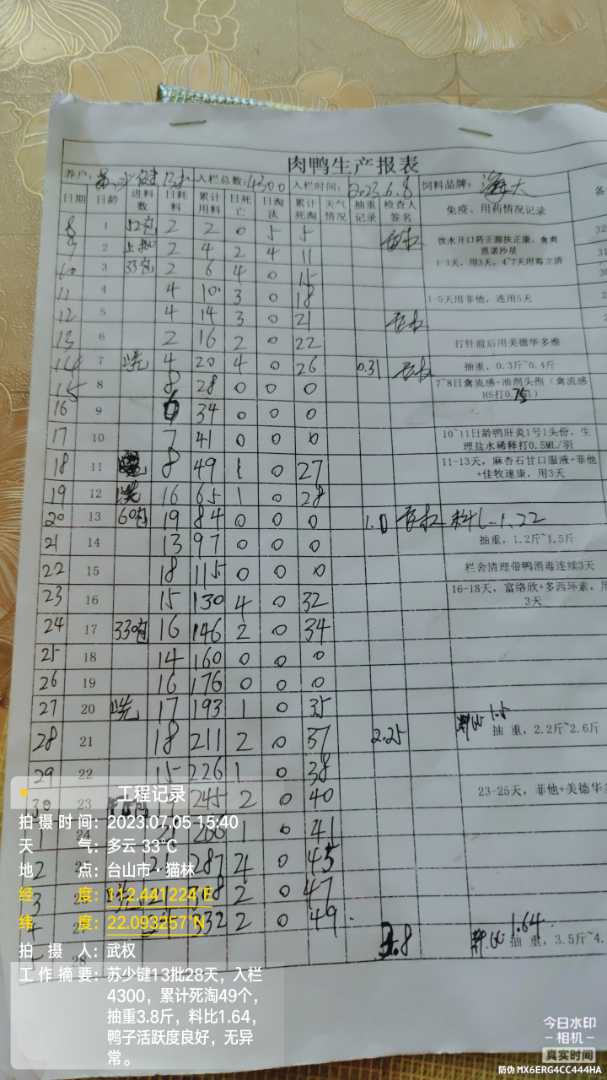 肉鸭生产报表
养户: 苏少键13批 入栏总数: 4300 入栏时间: 2023.6.8 饲料品牌: 海大
日期 日龄 进料数 日耗料 累计用料 日死亡 日淘汰 累计死淘 天气情况 抽重记录 检查人签名 免疫、用药情况记录
8 1 52包 2 2 0 5 5
饮水开口药
9 2 2 4 2 4 11
10 3 33包 2 6 4 0 15
1-3天, 用3天,
11 4 4 10 3 0 18
1-5天用菲他, 连用5天
12 5 4 14 3 0 21
13 6 2 16 2 0 22
打针前后用美德华多维
14 7 4 20 4 0 26 0.31
抽重, 0.3斤~0.4斤
15 8 8 28 0 0 0
7~8日禽流感+浆剂头剂（禽流感
H5打0.75
16 9 6 34 0 0 0
17 10 7 41 0 0 0
10~11日龄鸭肝炎1号1头份, 生
理盐水稀释打0.5ML/羽
18 11 8 49 1 0 27
11-13天, 麻杏石甘口服液+菲他
+佳牧速康, 用3天
19 12 16 65 1 0 28
20 13 60包 19 84 0 0 0 1.0 料比1.22
21 14 13 97 0 0 0
抽重, 1.2斤~1.5斤
22 15 18 115 0 0 0
栏舍清理带鸭消毒连续3天
23 16 15 130 4 0 32
16-18天, 富珞欣+多西环素, 用
3天
24 17 330包 16 146 2 0 34
25 18 14 160 0 0 0
26 19 16 176 0 0 0
27 20 17 193 1 0 35
28 21 18 211 2 0 37 2.25 料比1.5
抽重, 2.2斤~2.6斤
29 22 15 226 1 0 38
30 23 245 2 0 40
23-25天, 菲他+美德华
1 24 1 0 41
2 287 4 0 45
3 2 0 47
332 2 0 49
3.8 料比1.64
抽重, 3.5斤~4.
28
工程记录
拍摄时间: 2023.07.05 15:40
天 气: 多云 33℃
地 点: 台山市·猫林
经 度: 112.441224°E
纬 度: 22.093257°N
拍 摄 人: 武权
工作摘要: 苏少键13批28天，入栏
4300，累计死淘49个，
抽重3.8斤，料比1.64，
鸭子活跃度良好，无异
常。
今日水印
-相机-
真实时间
防伪 MX6ERG4CC444HA